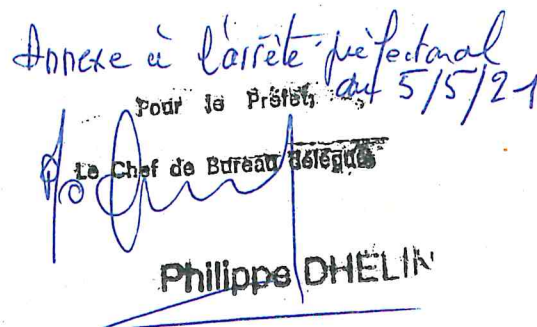 Annexe à l'arrêté préfectoral
du 5/5/21
Pour le Préfet,
Le Chef de Bureau délégué
Philippe DHELIN